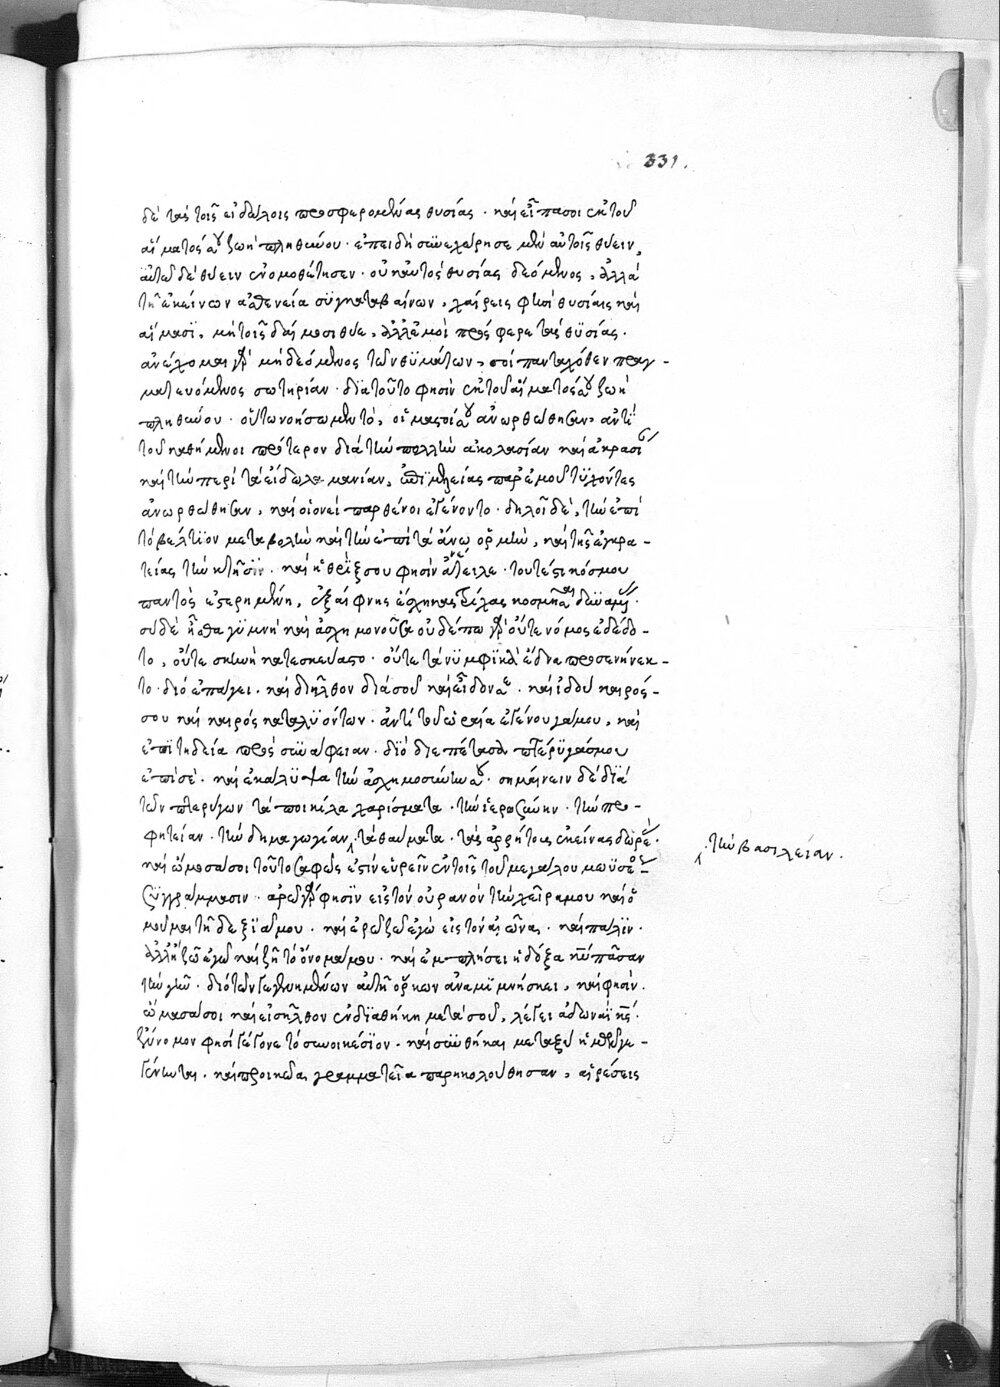 331.
δὲ τὰς τοῖς εἰδώλοις προσφερομένας θυσίας · καὶ εἶπά σοι ἐκ τοῦ
αἵματός σου ζωὴ πληθύνου · ἐπειδὴ συνεχώρησε μὲν αὐτοῖς θύειν,
αὐτῷ δὲ θύειν ἐνομοθέτησεν · οὐκ αὐτὸς θυσίας δεόμενος, ἀλλὰ
τῇ ἐκείνων ἀσθενείᾳ συγκαταβαίνων, χαίρεις φησὶ θυσίαις καὶ
αἵμασι, μὴ τοῖς δαίμοσι θύε, ἀλλ' ἐμοὶ πρόσφερε τὰς θυσίας ·
ἀνέχομαι γὰρ μὴ δεόμενος τῶν θυμάτων, σοὶ πανταχόθεν πραγ-
ματευόμενος σωτηρίαν · διὰ τοῦτο φησὶν ἐκ τοῦ αἵματός σου ζωὴ
πληθύνου · οὕτω νοήσωμεν τὸ, οἱ μαστοί σου ἀνωρθώθησαν, ἀντὶ
τοῦ καθήμενοι πρότερον διὰ τὴν πολλὴν ἀκολασίαν καὶ ἀκρασί
καὶ τὴν περὶ τὰ εἴδωλα μανίαν, ἐπιμελείας παρ' ἐμοῦ τυχόντες
ἀνωρθώθησαν, καὶ οἱονεὶ παρθένοι ἐγένοντο · δηλοῖ δὲ, τὴν ἐπὶ
τὸ βέλτιον μεταβολὴν καὶ τὴν ἐπὶ τὰ ἄνω ὁρμὴν, καὶ τῆς ἐγκρα-
τείας τὴν κτῆσιν · καὶ ἡ θρίξ σου φησὶν ἀνέτειλε · τουτέστι κόσμου
παντὸς ἐστερημένη, ἐξαίφνης ἔσχηκας τρίχας κοσμῆσαί δυναμένας ·
σὺ δὲ ἦσθα γυμνὴ καὶ ἀσχημονοῦσα οὐδέπω γὰρ οὔτε νόμος ἐδέδο-
το, οὔτε σκηνὴ κατεσκεύαστο · οὔτε τὰ νυμφικὰ ἕδνα προσενήνεκ-
το · διὸ ἐπάγει · καὶ διῆλθον διὰ σοῦ καὶ εἶδόν σε · καὶ ἰδοὺ καιρός-
σου καὶ καιρὸς καταλυόντων · ἀντὶ τοῦ ὡραία ἐγένου γάμου, καὶ
ἐπιτηδεία πρὸς συνάφειαν · διὸ διεπέτασα πτέρυγάς μου
ἐπὶ σέ · καὶ ἐκάλυψα τὴν ἀσχημοσύνην σου · σημαίνειν δὲ διὰ
τῶν πτερύγων τὰ ποικίλα χαρίσματα · τὴν ἱερωσύνην · τὴν προ-
φητείαν · τὴν δημαγωγίαν, τὰ θαύματα · τὰς ἀρρήτους ἐκείνας δωρεάς ·
· τὴν βασιλείαν ·
καὶ ὤμοσά σοι τοῦτο σαφῶς ἔστιν εὑρεῖν ἐν τοῖς τοῦ μεγάλου μωϋσέως
συγγράμμασιν · ἀρῶ γὰρ φησὶν εἰς τὸν οὐρανὸν τὴν χεῖρά μου καὶ ὀ
μοῦμαι τῇ δεξιᾷ μου · καὶ ἐρῶ ζῶ ἐγὼ εἰς τὸν αἰῶνας · καὶ πάλιν ·
ἀλλ' ἢ ζῶ ἐγὼ καὶ ζῇ τὸ ὄνομά μου · καὶ ἐμπλήσει ἡ δόξα κυρίου πᾶσαν
τὴν γῆν · διὸ τῶν γεγενημένων αὐτῇ ὅρκων ἀναμιμνήσκει, καὶ φησίν ·
ὤμοσά σοι καὶ εἰσῆλθον ἐν διαθήκῃ μετὰ σοῦ, λέγει ἀδωναῒ κύριος ·
ἔννομον φησὶ γέγονε τὸ συνοικέσιον · καὶ συνθῆκαι μεταξὺ ἡμῶν γε-
γένηνται · καὶ προικῷα γραμματεῖα παρηκολούθησαν, αἱρέσεις